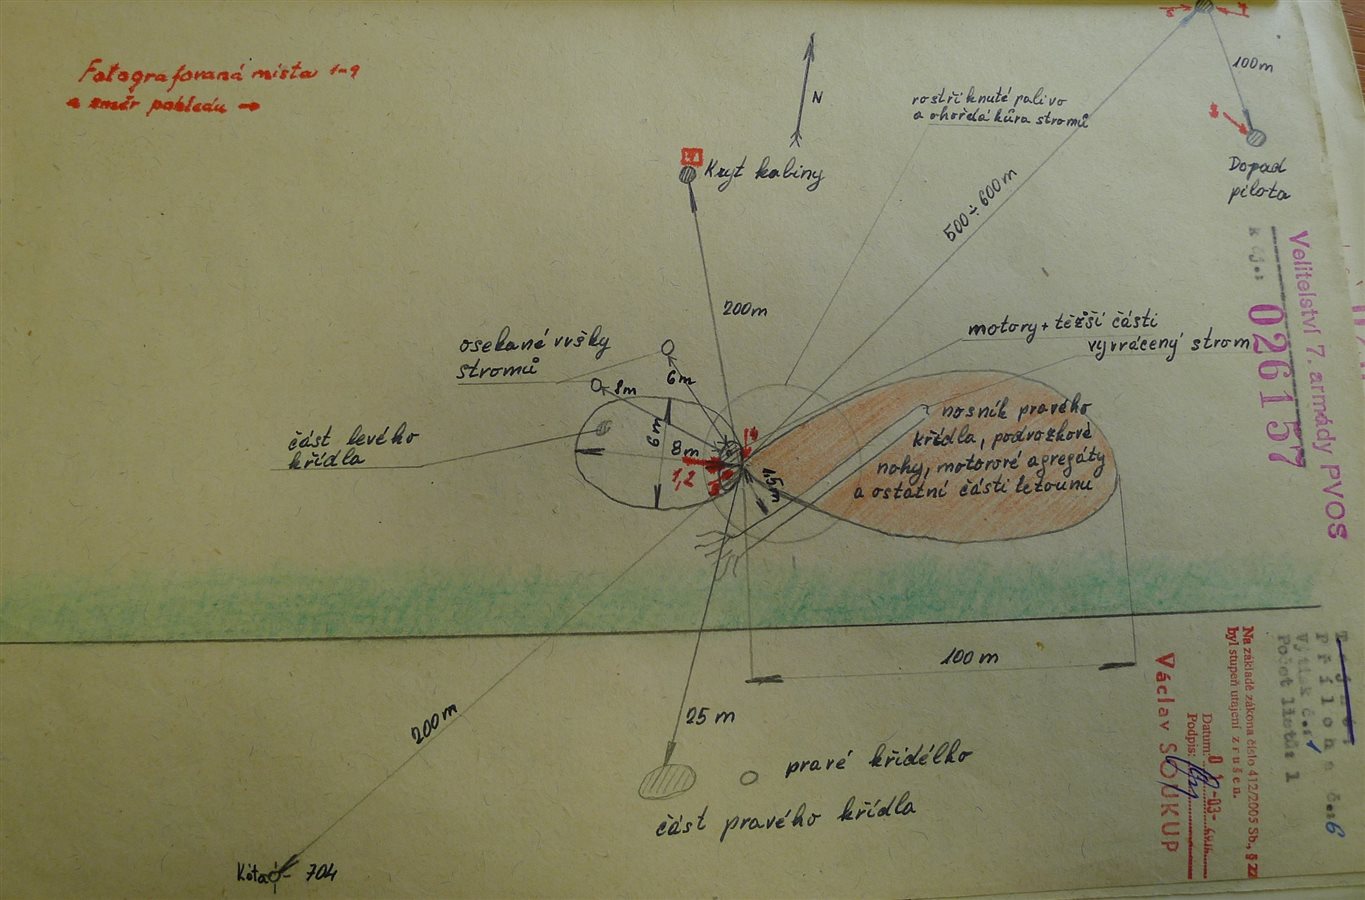 Fotografovaná místa 1-9
a směr pohledu →
N
rostříknuté palivo
a ohořelá kůra stromů
100m
Dopad
pilota
Kryt kabiny
500÷600m
200m
osekané vršky
stromů
6m
8m
9m
8m
1,2
1,5m
část levého
křídla
motory + těžší části
vyvrácený strom
nosník pravého
křídla, podvozkové
nohy, motorové agregáty
a ostatní části letounu
100m
200m
25m
pravé křidélko
část pravého křídla
Kóta 704
Velitelství 7. armády PVOS
k čj.:
026157
Příloha č.: 6
Výtisk č.: 1
Počet listů: 1
Na základě zákona číslo 412/2005 Sb., § 22
byl stupeň utajení zrušen.
Datum:
Podpis:
Václav SOUKUP